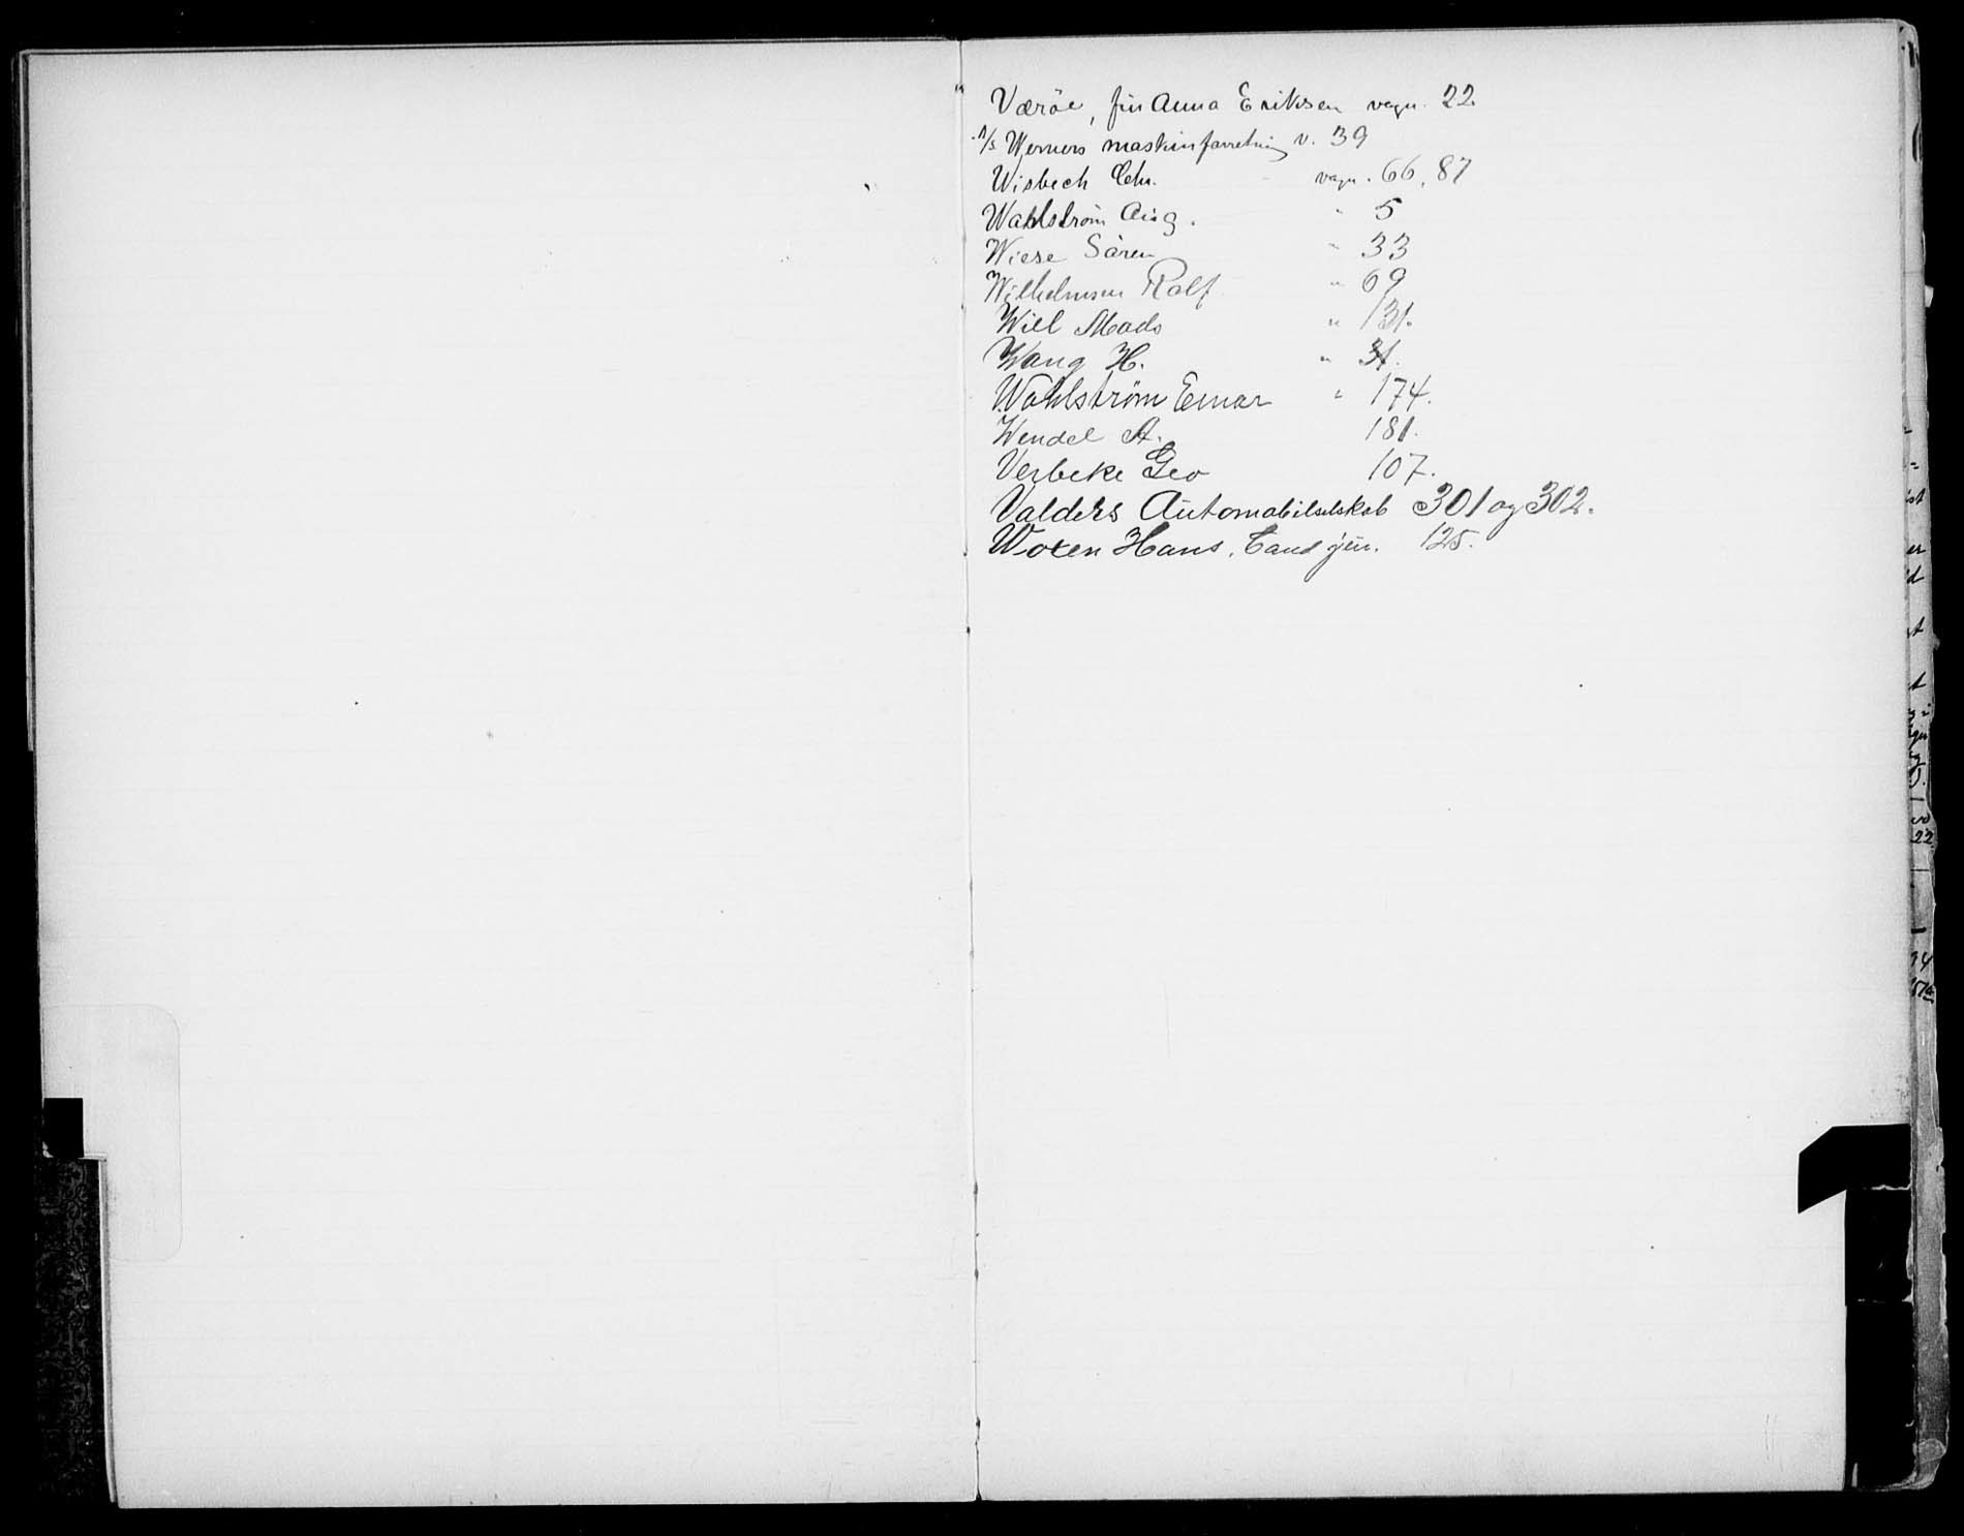 Værøe, frü Anna Eriksen vogn. 22
A/S Werners maskinforretning v. 39
Wisbech Chr. vogn. 66, 87
Wahlström Aüg. " 5
Wiese Sören " 33
Wilhelmsen Rolf " 69
Will Mads " 131.
Wang H. " 31.
Wahlstrøm Einar " 174.
Wendel A. 181.
Verbeke Geo 107.
Valders Aütomobilselskab 301 og 302.
Woxen Hans, Cand jür. 125.